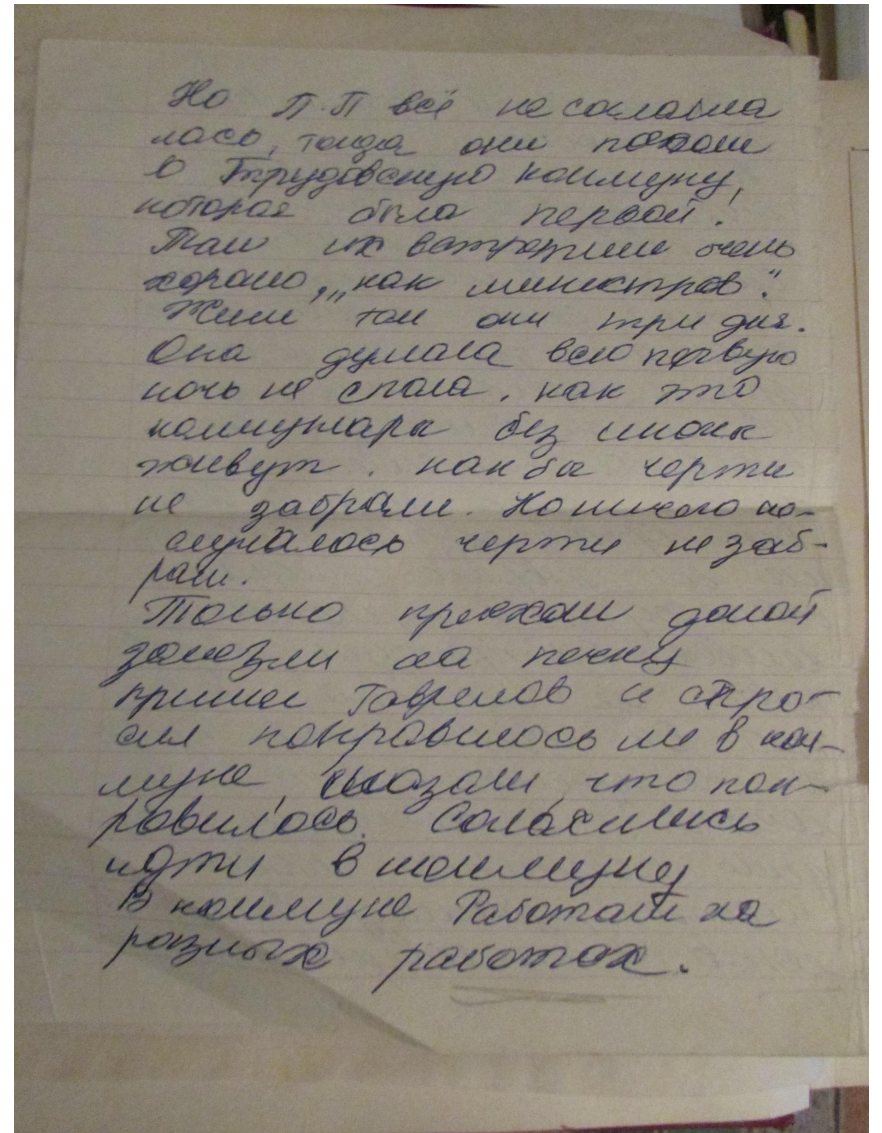 Но П.П всё не соглаша
лась, тогда они поехали
в Трудовскую коммуну,
которая была первой!
Там их встретили очень
хорошо, „как министров“.
Жили там они три дня.
Она думала всю первую
ночь не спала, как это
коммунары без иконы
живут. как бы черти
не забрали. Но ничего не-
случалось черти не заб-
рали.
Только приехали домой
залезли на печку
пришел Гаврилов и спро-
сил понравилось ли в ком-
муне, сказали, что пон-
равилось. Согласились
идти в коммуну
В коммуне Работали на
разных работах.